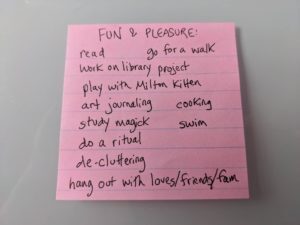 FUN & PLEASURE:
read go for a walk
work on library project
play with Milton Kitten
art journaling cooking
study magick swim
do a ritual
de-cluttering
hang out with loves/friends/fam